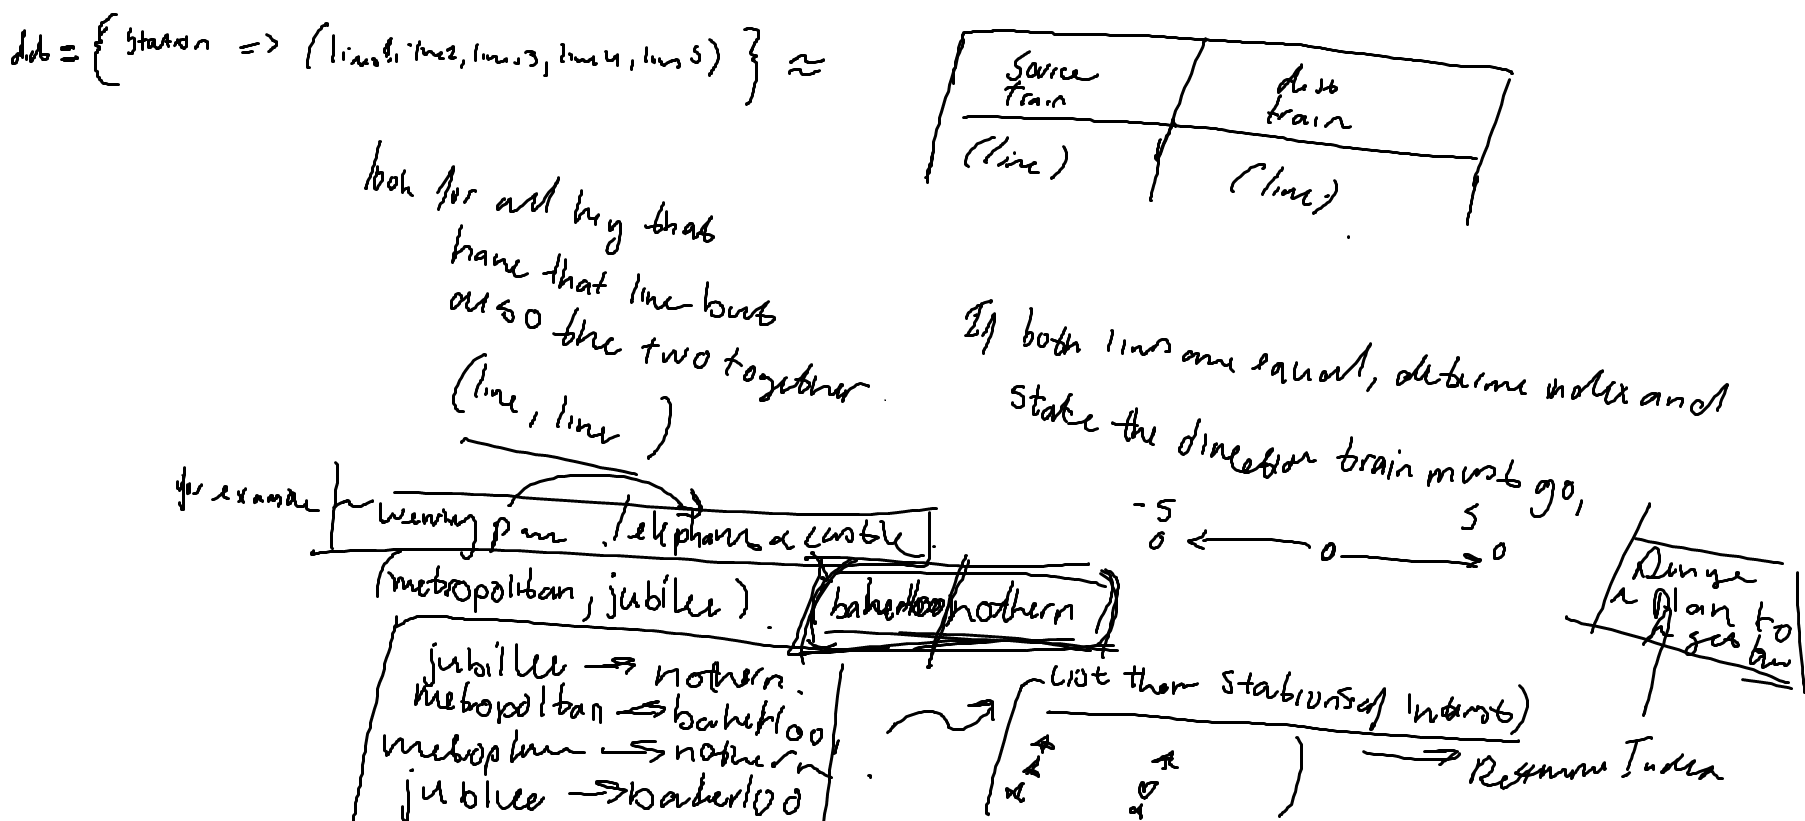 db = { station => (line1, line2, line3, line4, line5) } ≈
source train
dest train
(line)
(line)
look for all key that
have that line but
also the two together
(line, line)
If both lines are equal, determine index and
state the direction train must go,
-5
5
0
0
0
for example
elephant & castle
(metropolitan, jubilee)
bakerloo nothern
jubillee → nothern
metropolitan → bakerloo
→ nothern
jublee → bakerloo
List them stations of interest)
→ Index
plan to